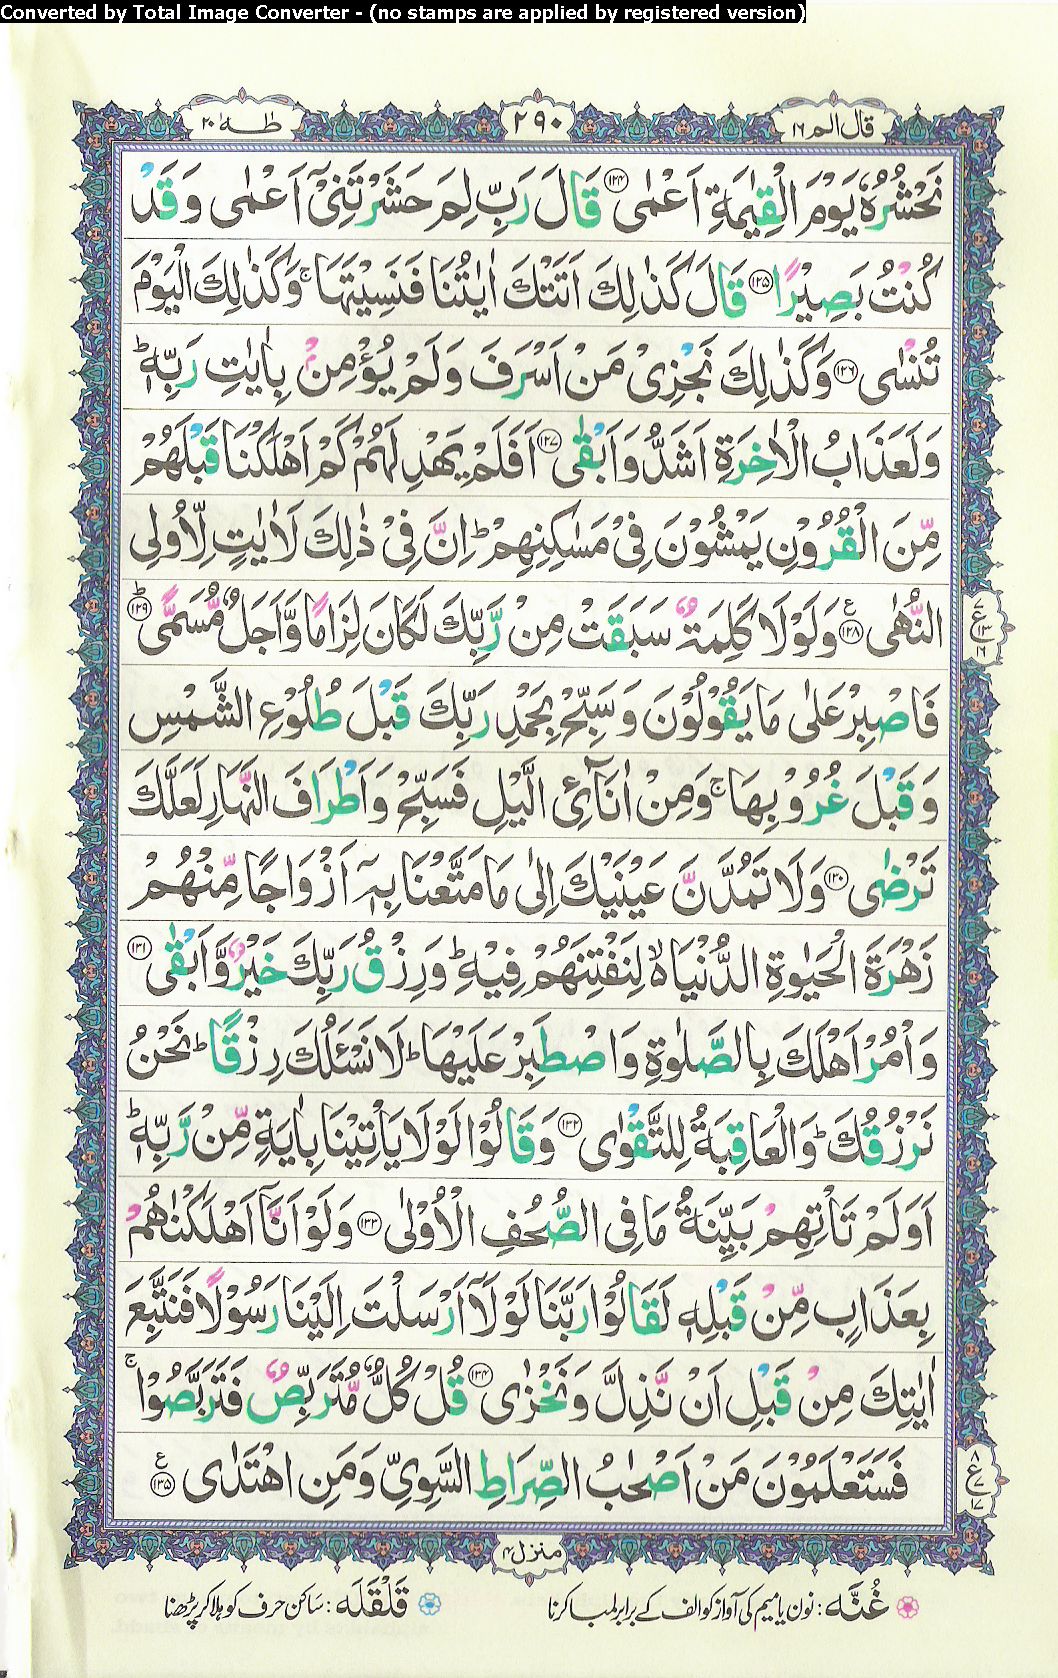 Converted by Total Image Converter - (no stamps are applied by registered version)
قال الم ١٦
٢٩٠
طٰهٰ ٢٠
نَحْشُرُهٗ يَوْمَ الْقِيٰمَةِ اَعْمٰى ﴿۱۲۴﴾ قَالَ رَبِّ لِمَ حَشَرْتَنِىْۤ اَعْمٰى وَقَدْ
كُنْتُ بَصِيْرًا ﴿۱۲۵﴾ قَالَ كَذٰلِكَ اَتَتْكَ اٰيٰتُنَا فَنَسِيْتَهَا ۚ وَكَذٰلِكَ الْيَوْمَ
تُنْسٰى ﴿۱۲۶﴾ وَكَذٰلِكَ نَجْزِىْ مَنْ اَسْرَفَ وَلَمْ يُؤْمِنْۢ بِاٰيٰتِ رَبِّهٖ ؕ
وَلَعَذَابُ الْاٰخِرَةِ اَشَدُّ وَاَبْقٰى ﴿۱۲۷﴾ اَفَلَمْ يَهْدِ لَهُمْ كَمْ اَهْلَكْنَا قَبْلَهُمْ
مِّنَ الْقُرُوْنِ يَمْشُوْنَ فِىْ مَسٰكِنِهِمْ ؕ اِنَّ فِىْ ذٰلِكَ لَاٰيٰتٍ لِّاُولِى
النُّهٰى ﴿۱۲۸﴾ ع وَلَوْلَا كَلِمَةٌ سَبَقَتْ مِنْ رَّبِّكَ لَكَانَ لِزَامًا وَّاَجَلٌ مُّسَمًّى ؕ ﴿۱۲۹﴾
٧
ع
١٣
١٦
فَاصْبِرْ عَلٰى مَا يَقُوْلُوْنَ وَسَبِّحْ بِحَمْدِ رَبِّكَ قَبْلَ طُلُوْعِ الشَّمْسِ
وَقَبْلَ غُرُوْبِهَا ۚ وَمِنْ اٰنَآئِ الَّيْلِ فَسَبِّحْ وَاَطْرَافَ النَّهَارِ لَعَلَّكَ
تَرْضٰى ﴿۱۳۰﴾ وَلَا تَمُدَّنَّ عَيْنَيْكَ اِلٰى مَا مَتَّعْنَا بِهٖۤ اَزْوَاجًا مِّنْهُمْ
زَهْرَةَ الْحَيٰوةِ الدُّنْيَا ۙ۬ لِنَفْتِنَهُمْ فِيْهِ ؕ وَرِزْقُ رَبِّكَ خَيْرٌ وَّاَبْقٰى ﴿۱۳۱﴾
وَاْمُرْ اَهْلَكَ بِالصَّلٰوةِ وَاصْطَبِرْ عَلَيْهَا ؕ لَا نَسْـَٔلُكَ رِزْقًا ؕ نَحْنُ
نَرْزُقُكَ ؕ وَالْعَاقِبَةُ لِلتَّقْوٰى ﴿۱۳۲﴾ وَقَالُوْا لَوْلَا يَاْتِيْنَا بِاٰيَةٍ مِّنْ رَّبِّهٖ ؕ
اَوَلَمْ تَاْتِهِمْ بَيِّنَةُ مَا فِى الصُّحُفِ الْاُوْلٰى ﴿۱۳۳﴾ وَلَوْ اَنَّاۤ اَهْلَكْنٰهُمْ
بِعَذَابٍ مِّنْ قَبْلِهٖ لَقَالُوْا رَبَّنَا لَوْلَاۤ اَرْسَلْتَ اِلَيْنَا رَسُوْلًا فَنَتَّبِعَ
اٰيٰتِكَ مِنْ قَبْلِ اَنْ نَّذِلَّ وَنَخْزٰى ﴿۱۳۴﴾ قُلْ كُلٌّ مُّتَرَبِّصٌ فَتَرَبَّصُوْا ۚ
فَسَتَعْلَمُوْنَ مَنْ اَصْحٰبُ الصِّرَاطِ السَّوِىِّ وَمَنِ اهْتَدٰى ﴿۱۳۵﴾ ع
٨
ع
٧
١٧
منزل ٤
غُنَّه : نون یا میم کی آواز کو الف کے برابر لمبا کرنا
قَلْقَلَه : ساکن حرف کو ہلا کر پڑھنا